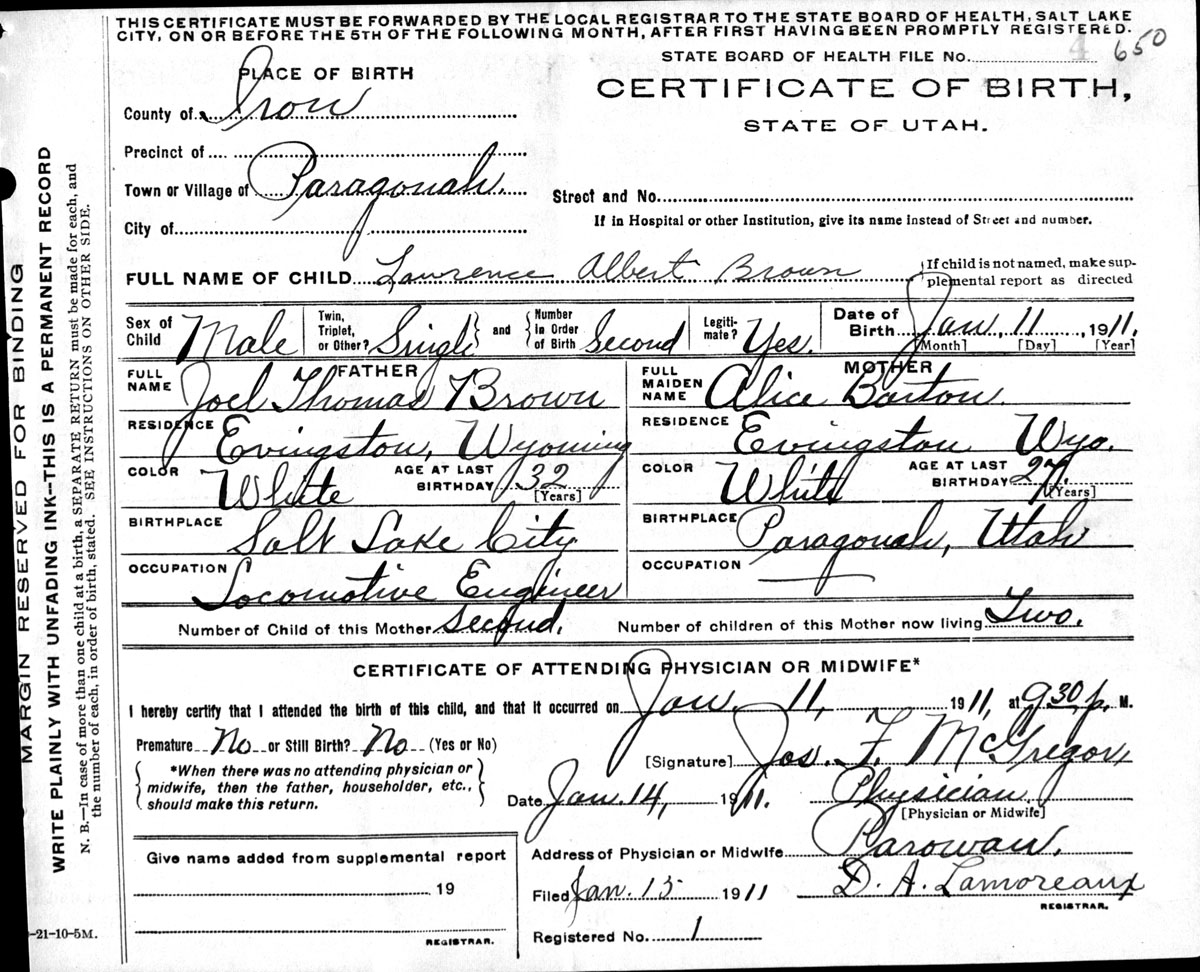 THIS CERTIFICATE MUST BE FORWARDED BY THE LOCAL REGISTRAR TO THE STATE BOARD OF HEALTH, SALT LAKE
CITY, ON OR BEFORE THE 5TH OF THE FOLLOWING MONTH, AFTER FIRST HAVING BEEN PROMPTLY REGISTERED.
STATE BOARD OF HEALTH FILE No. 4 650
PLACE OF BIRTH
CERTIFICATE OF BIRTH,
STATE OF UTAH.
County of Iron
Precinct of
Town or Village of Paragonah.
Street and No.
City of
If in Hospital or other Institution, give its name instead of Street and number.
FULL NAME OF CHILD Lawrence Albert Brown
If child is not named, make sup-
plemental report as directed
Sex of Child Male
Twin, Triplet, or Other? Single and Number in Order of Birth Second
Legiti-mate? Yes.
Date of Birth Jan, 11, 1911.
[Month] [Day] [Year]
FATHER
MOTHER
FULL NAME Joel Thomas Brown
FULL MAIDEN NAME Alice Barton.
RESIDENCE Evingston, Wyoming
RESIDENCE Evingston Wyo.
COLOR White AGE AT LAST BIRTHDAY 32 [Years]
COLOR White AGE AT LAST BIRTHDAY 27. [Years]
BIRTHPLACE Salt Lake City
BIRTHPLACE Paragonah, Utah
OCCUPATION Locomotive Engineer
OCCUPATION
Number of Child of this Mother Second. Number of children of this Mother now living Two.
CERTIFICATE OF ATTENDING PHYSICIAN OR MIDWIFE*
I hereby certify that I attended the birth of this child, and that it occurred on Jan. 11, 1911, at 9 30 p. M.
Premature No or Still Birth? No (Yes or No)
[Signature] Jos. F. McGregor,
*When there was no attending physician or
midwife, then the father, householder, etc.,
should make this return.
Date Jan. 14, 1911. Physician.
[Physician or Midwife]
Give name added from supplemental report
19
REGISTRAR.
Address of Physician or Midwife Parowan.
Filed Jan. 15 1911 D. A. Lamoreaux
REGISTRAR.
Registered No. 1
MARGIN RESERVED FOR BINDING
WRITE PLAINLY WITH UNFADING INK--THIS IS A PERMANENT RECORD
N. B.--In case of more than one child at a birth, a SEPARATE RETURN must be made for each, and
the number of each, in order of birth, stated. SEE INSTRUCTIONS ON OTHER SIDE.
-21-10-5M.